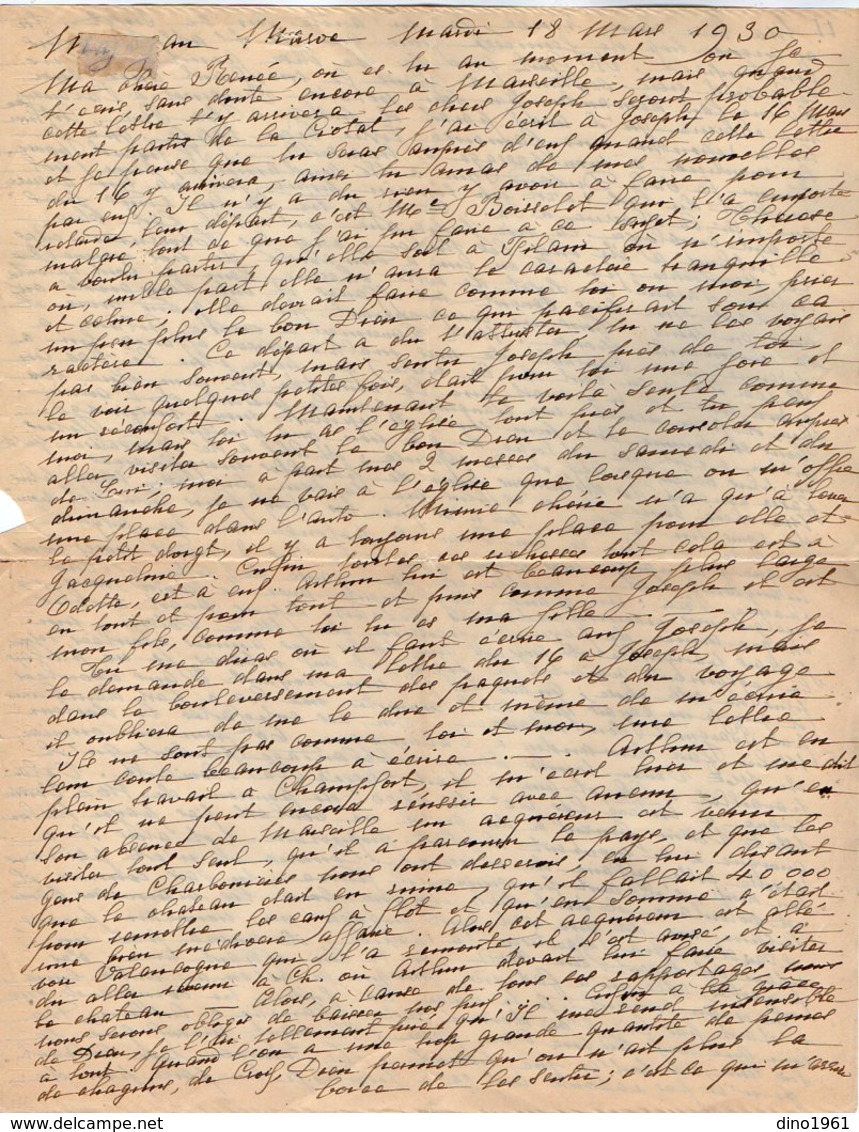 Mardi 18 Mars 1930
Ma chère Renée, on es tu au moment où je
t'écris, sans doute encore à Marseille, mais quand
cette lettre t'y arrivera les chers Joseph seront probable-
ment partis de la Ciotat, j'ai écrit à Joseph le 16 Mars
et je pense que tu seras auprès d'eux quand cette lettre
du 16 y arrivera, ainsi tu auras de mes nouvelles
par eux. Il n'y a du rien y avoir à faire pour
retarder leur départ, c'est Me Boisselet qui l'a emporté
malgré tout ce que j'ai pu faire à ce sujet; Thérèse
a voulu partir, qu'elle soit à ou n'importe
où, nulle part elle n'aura le caractère tranquille
et calme; elle devrait faire comme toi ou moi, prier
un peu plus le bon Dieu ce qui pacifierait son ca-
ractère. Ce départ a du t'attrister, tu ne les voyais
pas bien souvent, mais sentir Joseph près de toi
le voir quelques petites fois, était pour toi une joie et
un réconfort. Maintenant te voilà seule comme
moi, mais toi tu as l'église tout près et tu peux
aller visiter souvent le bon Dieu et te consoler auprès
de Lui; moi à part mes 2 messes du samedi et du
dimanche, je ne vais à l'église que lorsque on m'offre
une place dans l'auto. chérie n'a qu'à lever
le petit doigt, il y a toujours une place pour elle et
Jacqueline. Enfin toutes ces richesses tout cela est à
Odette, est à eux. Arthur lui est beaucoup plus large
en tout et pour tout et puis comme Joseph il est
mon fils, comme toi tu es ma fille
Tu me diras où il faut écrire aux Joseph, je
le demande dans ma lettre du 16 à Joseph, mais
dans le bouleversement des paquets et du voyage
il oubliera de me le dire et même de m'écrire
Ils ne sont pas comme toi et moi, une lettre
leur coute beaucoup à écrire. Arthur est en
plein travail à Champfort, il m'écrit hier et me dit
qu'il ne peut encore réussir avec aucun, qu'en
son absence de Marseille un acquéreur est venu
visiter tout seul, qu'il a parcouru le pays, et que les
gens de Charbonnières nous ont desservis, en lui disant
que le chateau était en ruine, qu'il fallait 40000
pour remettre les eaux à flot et qu'en somme c'était
une bien médiocre affaire. Alors cet acquéreur est allé
voir Valancogne qui l'a remonté, il s'est avisé, et a
du aller à Ch. où Arthur devait lui faire visiter
le chateau — Alors, à cause de tous ces rapportages nous
nous serons obligés de baisser nos prix... Enfin à la grâce
de Dieu, je l'ai tellement prié qu'il me rend insensible
à tout. Quand l'on a une trop grande quantité de peines
de chagrins, de Croix, Dieu permet qu'on n'ait plus la
force de les sentir; c'est ce qui m'arrive
dino1961